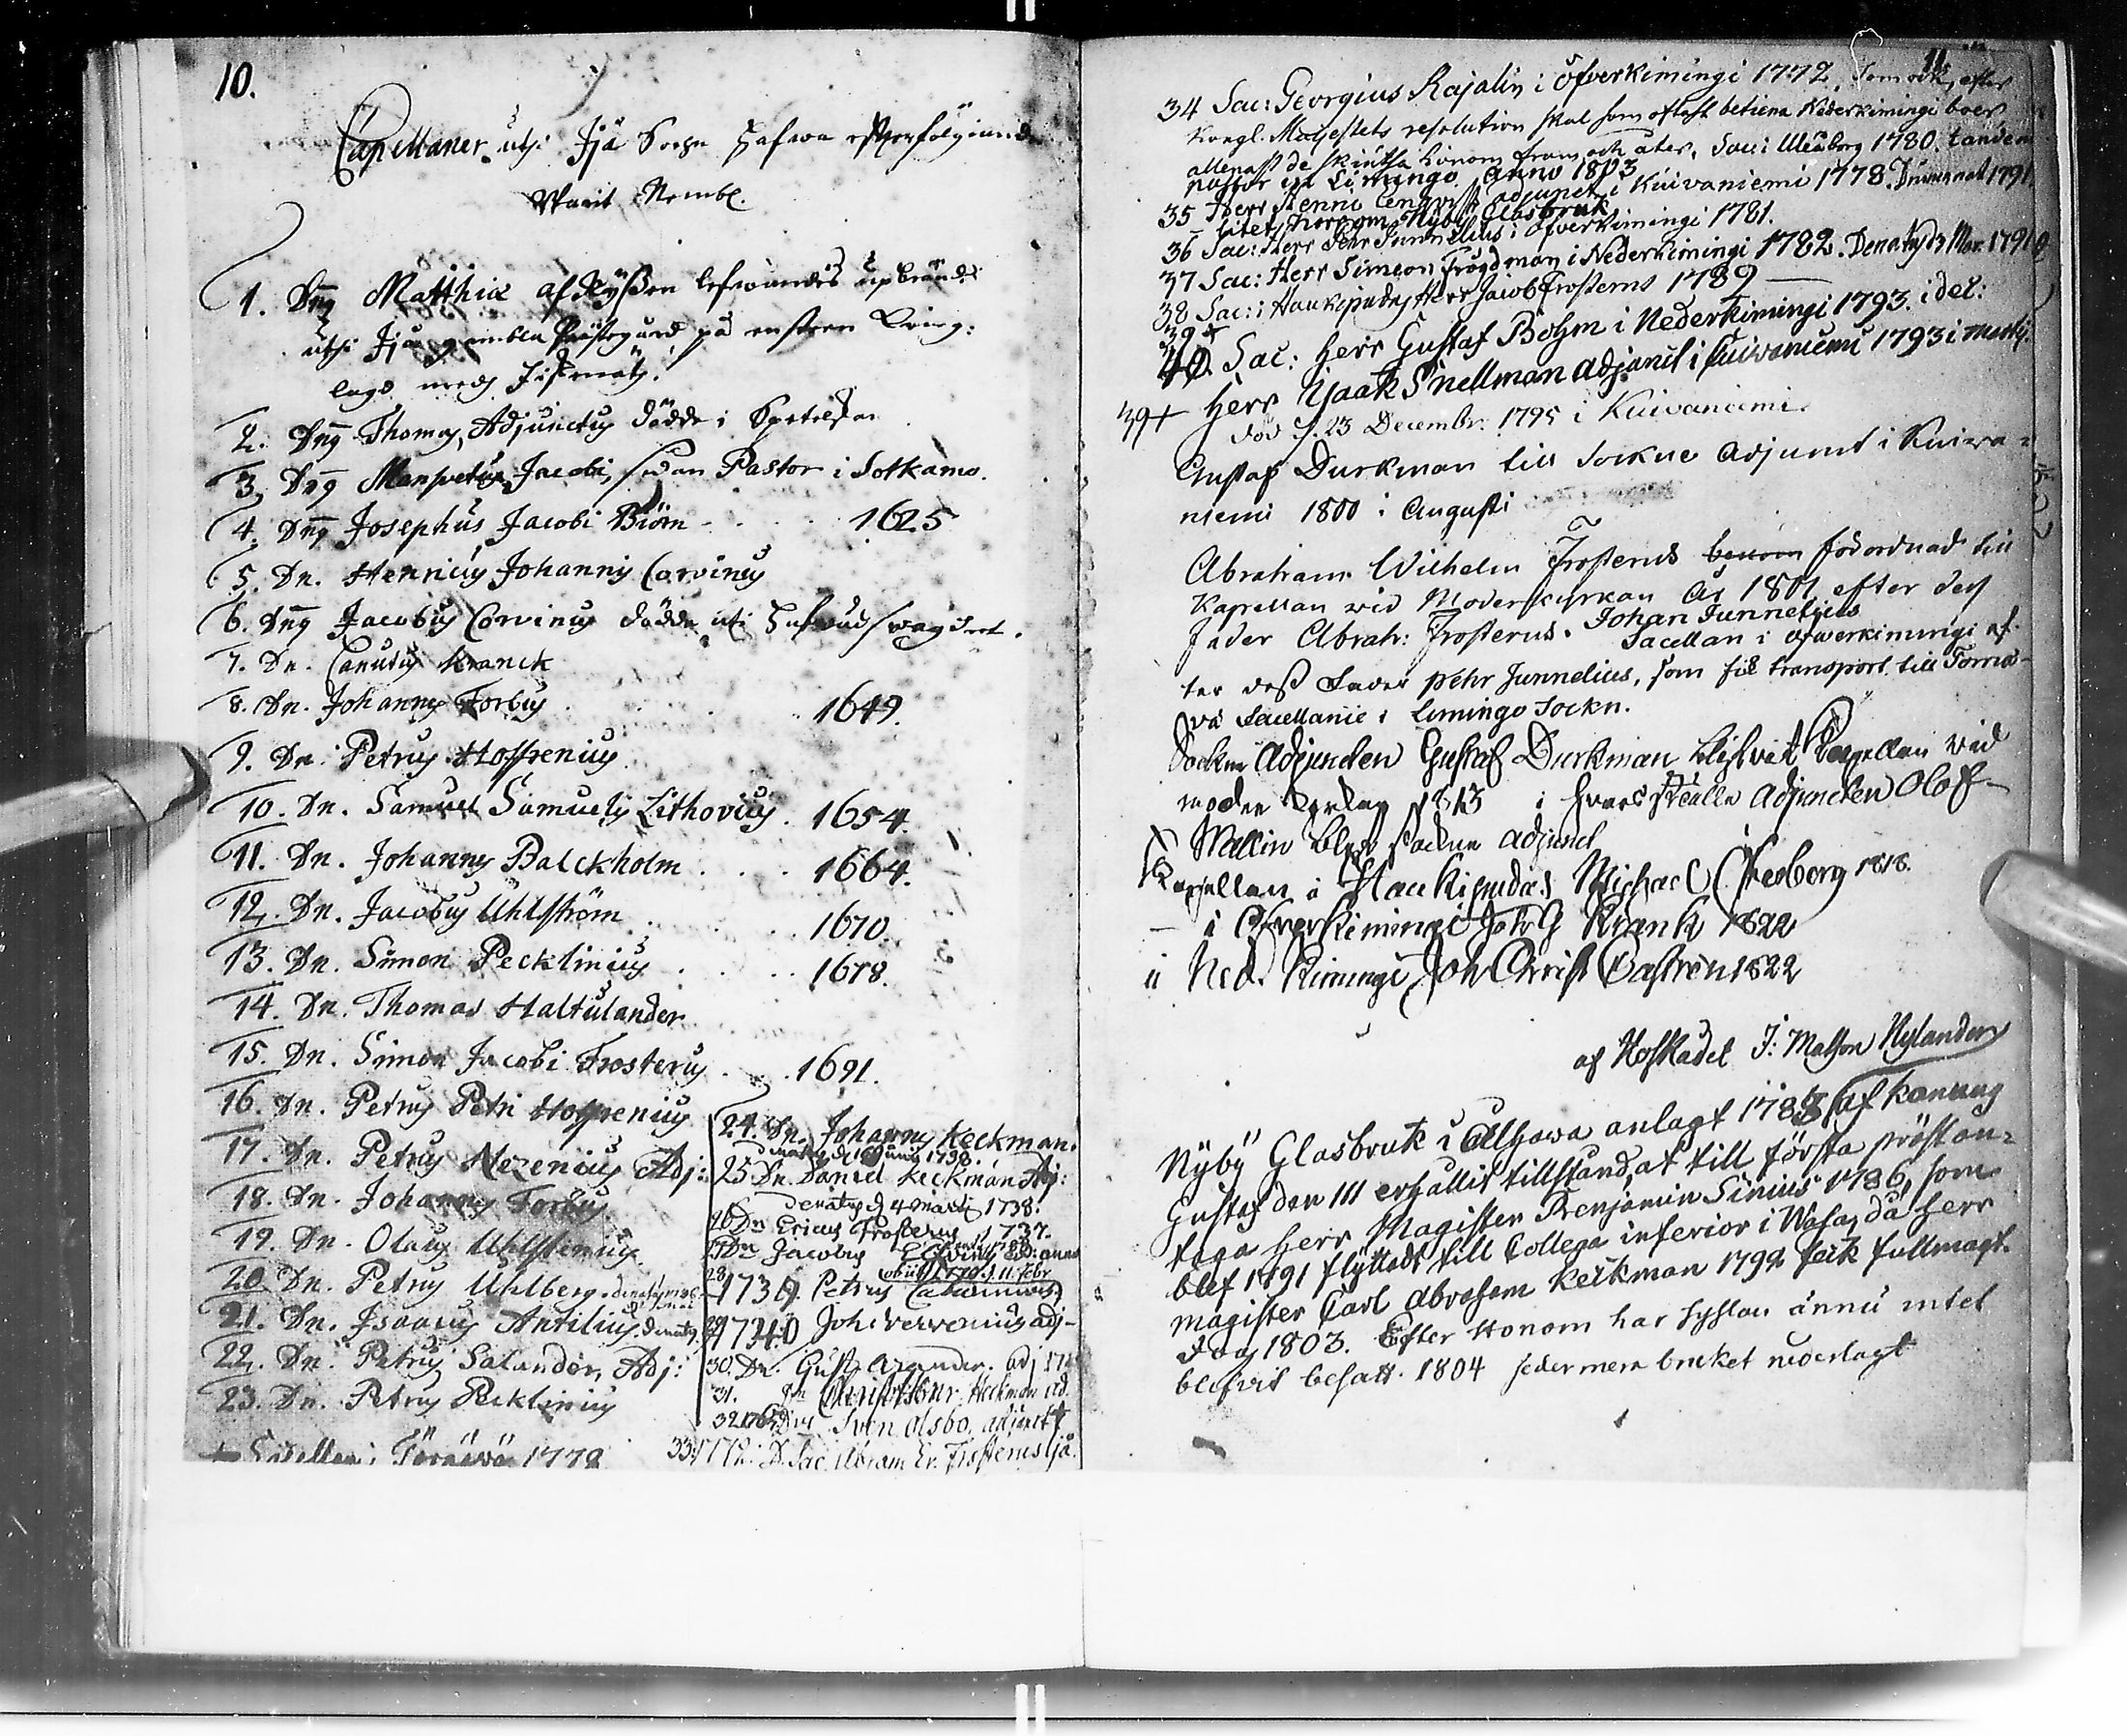 10.
Capellaner uthi Ijå Sochn hafwa effterfölgiande
Warit Nembl.
1. Dnq Matthiæ af Ryßen lefwandes upbränd
uthi Ijå gambla Prästegård på en steen
lagd medh
2. Dnq Thomas, Adjunctus dödde i
3. Dnq Jacobi, sedan Pastor i Sotkamo.
4. Dnq Josephus Jacobi Biörn - . . . 1625
5. Dn. Henricus Johannis Corvinus
6. Dnq Jacobus Corvinus dödde uti
7. Dn. Canutus Kranck
8. Dn. Johannes Forbus . . . . 1649.
9. Dn. Petrus Hoffrenius
10. Dn. Samuel Samuelis Lithovius . 1654.
11. Dn. Johannes Balckholm . . . . 1664.
12. Dn. Jacobus Uhlström . . . 1670.
13. Dn. Simon Pecklinius . . . . 1678.
14. Dn. Thomas Haltulander
15. Dn. Simon Jacobi Frosterus . . . 1691.
16. Dn. Petrus Petri Hoffrenius
17. Dn. Petrus Nezenius Adj:
18. Dn. Johannes Forbus
19. Dn. Olaus
20. Dn. Petrus Uhlberg.
21. Dn. Isaacus Antilius.
22. Dn. Petrus Salander, Adj:
23. Dn. Petrus Pecklinius
24. Dn. Johannes Keckman.
25 Dn. Daniel Keckman Adj:
denatus d 4 Martij 1738.
26 Dn Ericus Frosterus 1737.
27 Dn Jacobus
obiit 1770. d. 11. Febr
28 1730. Petrus
29 1740 Joh: adj-
30. Dn. Gust: adj
31. Dn Christopher Keckman ad.
32. 1765 Dns Sven Olsbo. adjunct
+ Capellan i Törnäwä 1772
33. 1772. D. Sac. Abram Er. Frosterus Ijå.
11
34 Sac: Georgius Rajalin i Öfverkimingi 1772, som ock, efter
Kongl. Majestets resolution skal som oftast betiena Nederkimingi boer,
allenast de skiutsa honom fram och åter. Sac: i Uleåborg 1780. tandem
pastor in Limingo anno 1803
35 Herr Stenni Lenqvist adjunct i Kuivaniemi 1778. 1791
Nyby Glasbruk
36 Sac: Herr Pehr Junnelius i Öfverkimingi 1781.
37 Sac: Herr Simeon Frögdman i Nederkimingi 1782. Denatus d 3 Mar. 1791
38 Sac: i Haukipudas Herr Jacob Frosterus 1789
39 +
40. Sac: Herr Gustaf Bohm i Nederkimingi 1793. i dec:
39 + Herr Isaak Snellman adjunct i Kuivaniemi 1793 i Martij.
död d. 23 Decembr. 1795 i Kuivaniemi.
Gustaf Durkman till Sockne Adjunct i Kuiva=
niemi 1800 i Augusti
Abraham Wilhelm Frosterus förordnad till
Kapellan wid Moderkyrkan År 1801 efter des
fader Abrah: Frosterus. Johan Junnelius
Sacellan i öfwerkimingi ef-
ter deß Fader Pehr Junnelius, som fik transport till Törnä-
vä Sacellanie i Limingo Sockn.
Sockne Adjuncten Gustaf Durkman blifvit Capellan vid
moder kyrkan 1813 i hvars ställe Adjuncten Olof
Wallin blef sockne adjunct
Capellan i Haukipudas Michael Chesberg 1818.
— i Öfverkimingi Joh. G Krank 1822
ii Ned. Kimingi Joh Christ Castrén 1822
af Hofkadet J: Matson Nylander
Nyby Glasbruk i Ellhawa anlagt 1783, af Konung
Gustaf den III erhållit tillstånd, at till första präst an=
taga Herr Magister Benjamin Sinius 1786, som
blef 1791 flyttadt till Collega inferior i Wasa, då Herr
magister Carl Abraham Keckman 1792 feck fullmagt.
Dog 1803. Efter Honom har Sysslan ännu intet
blifvit besatt. 1804 sedermera bruket nederlagt